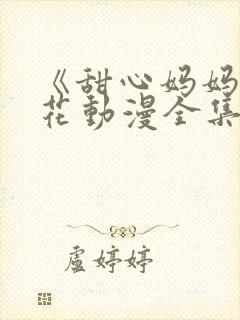 《甜心妈妈
花動漫全集
盧婷婷